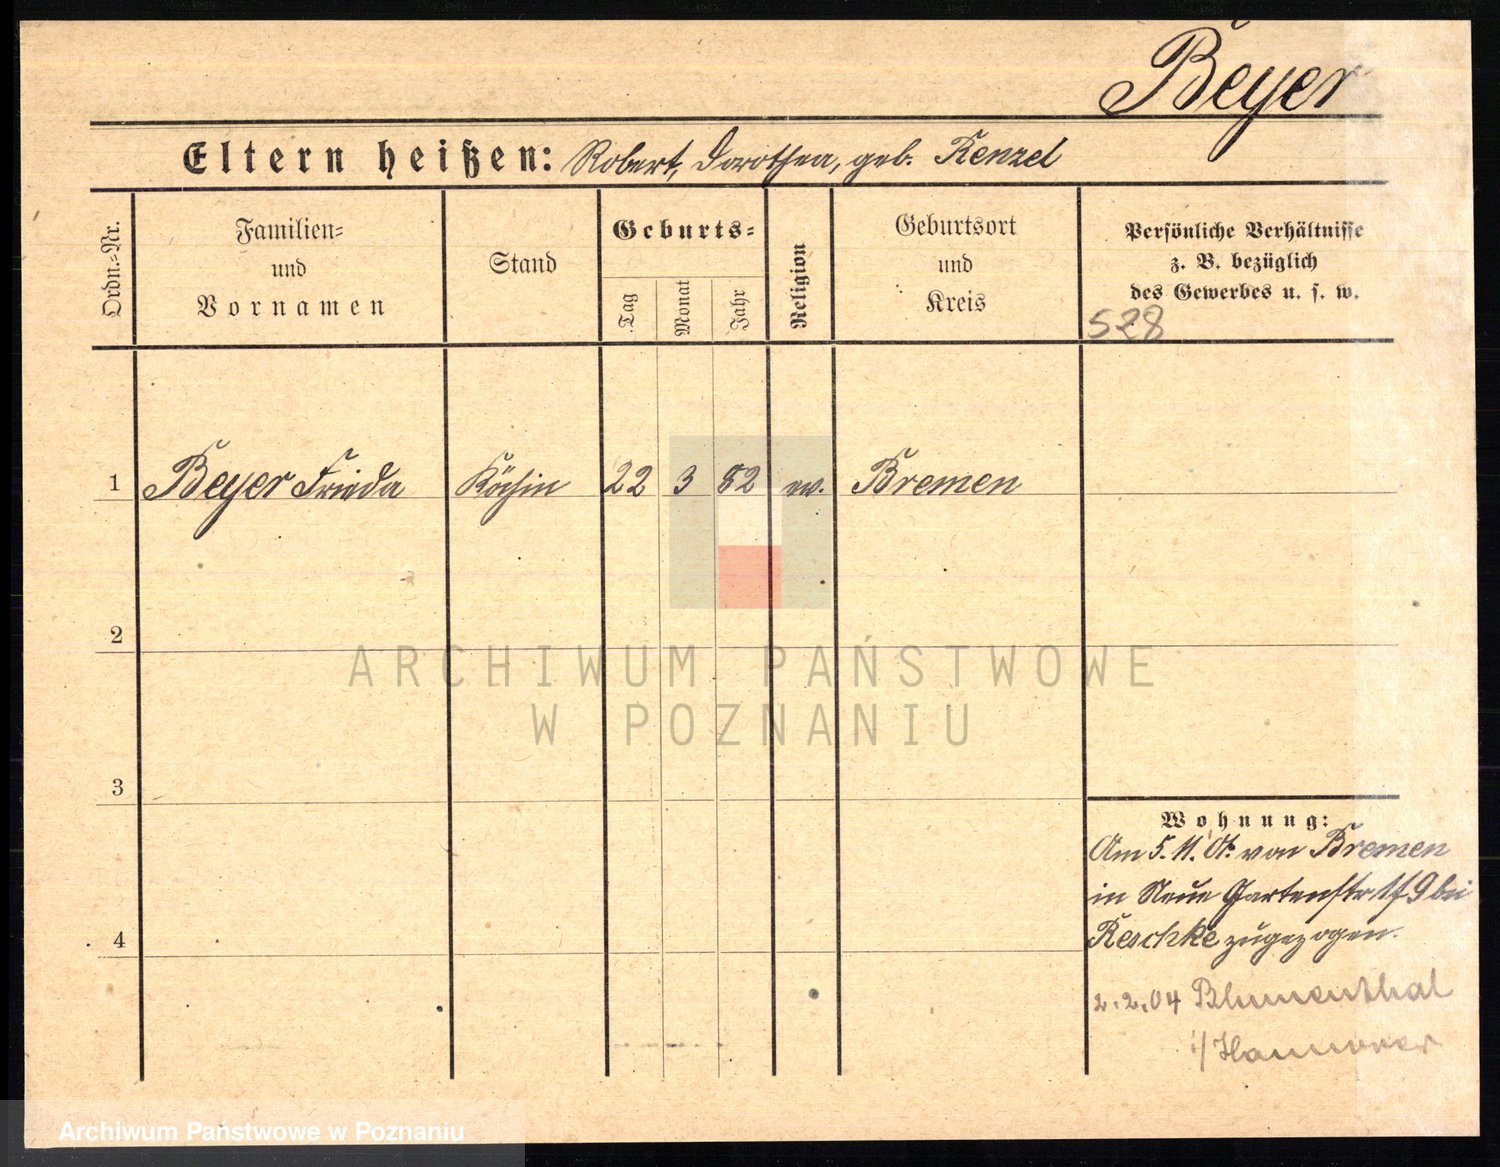 Beyer
Eltern heißen: Robert, Dorothea, geb. Renzel
Ordn.-Nr.
Familien-
und
Vornamen
Stand
Geburts-
Tag
Monat
Jahr
Religion
Geburtsort
und
Kreis
Persönliche Verhältnisse
z. B. bezüglich
des Gewerbes u. s. w.
528
1 Beyer Frieda Köchin 22 3 82 ev. Bremen
2
3
4
Wohnung:
Am 5. 11. von Bremen
in Neue Gartenstr bei
Reschke zugezogen.
2.2.04 Blumenthal
i/ Hannover
ARCHIWUM PAŃSTWOWE
W POZNANIU
Archiwum Państwowe w Poznaniu